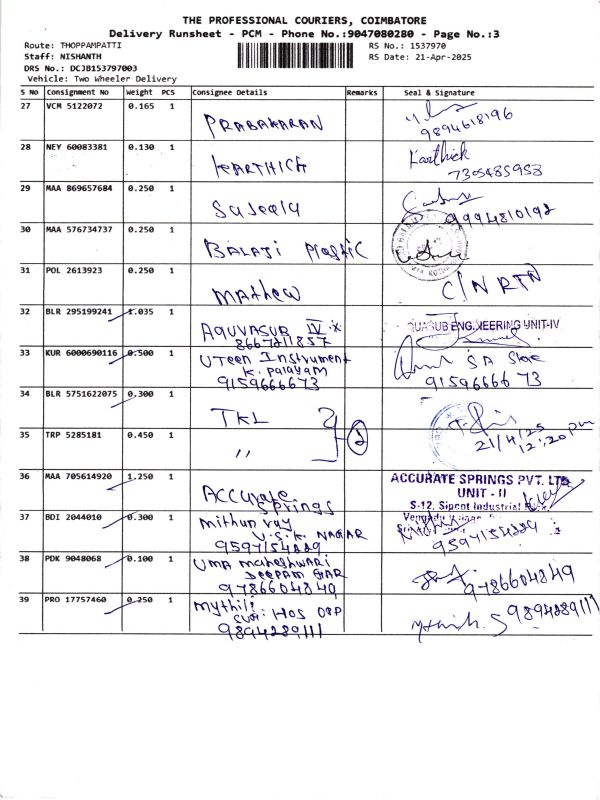 THE PROFESSIONAL COURIERS, COIMBATORE
Delivery Runsheet - PCM - Phone No.:9047080280 - Page No.:3
Route: THOPPAMPATTI RS No.: 1537970
Staff: NISHANTH RS Date: 21-Apr-2025
DRS No.: DCJB153797003
Vehicle: Two Wheeler Delivery
S No Consignment No Weight PCS Consignee Details Remarks Seal & Signature
27 VCM 5122072 0.165 1
PRABAKARAN
9894618196
28 NEY 60083381 0.130 1
KARTHICK Karthick
7305485953
29 MAA 869657684 0.250 1
Sujeela
9994810192
30 MAA 576734737 0.250 1
BALAJI Plastic
31 POL 2613923 0.250 1
Mathew C/N RTN
32 BLR 295199241 1.035 1
AQUVASUB IV
8667211857
QUASUB ENGINEERING UNIT-IV
33 KUR 6000690116 0.500 1
UTeen Instrument
K. Palayam
9159666673 9159666673
34 BLR 5751622075 0.300 1
TKL
21/4/25
12:20 pm
35 TRP 5285181 0.450 1
〃 2
36 MAA 705614920 1.250 1
ACCurate
Springs
ACCURATE SPRINGS PVT. LTD
UNIT - II
S-12, Sipcot Industrial
37 BDI 2044010 0.300 1
Mithun ray
V.S.K. NAGAR
9597154229 9597154229
38 PDK 9048068 0.100 1
UMA Maheshwari
9786604849 9786604849
39 PRO 17757460 0.250 1
Mythili
9894289111 9894289111